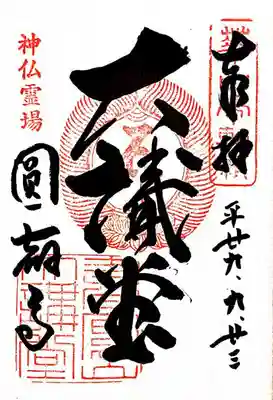 奉拝
平廿九.九.廿三
大講堂
神仏霊場
圓教寺